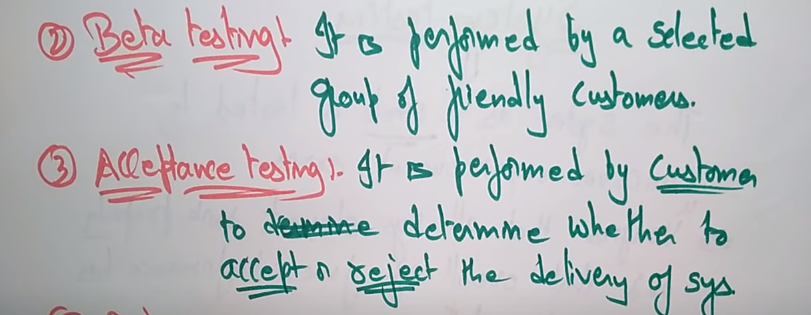 ② Beta testing: It is performed by a selected
group of friendly customers.
③ Acceptance testing:- It is performed by Customer
to determine whether to
accept or reject the delivery of sys.